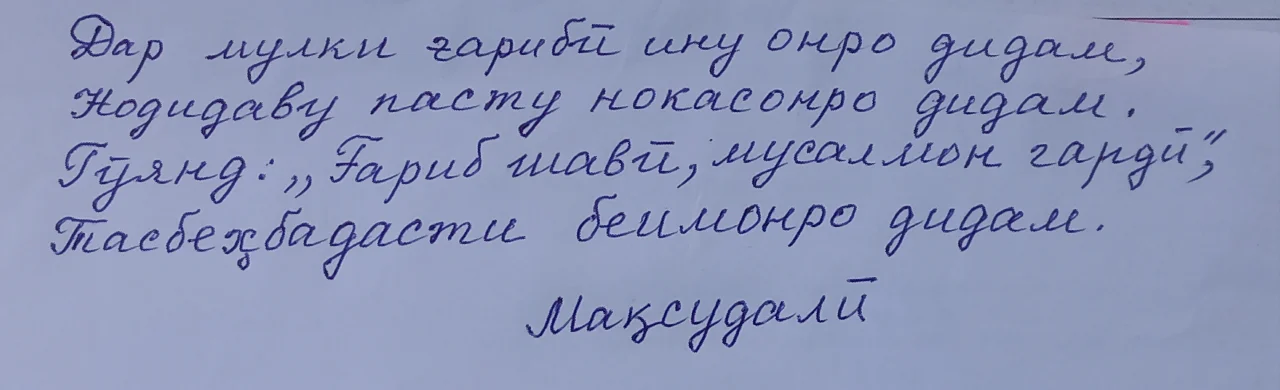 Дар мулки ғарибӣ ину онро дидам,
Нодидаву пасту нокасонро дидам.
Гӯянд: „Ғариб шавӣ, мусалмон гардӣ“,
Тасбеҳбадасти беимонро дидам.
Мақсудалӣ